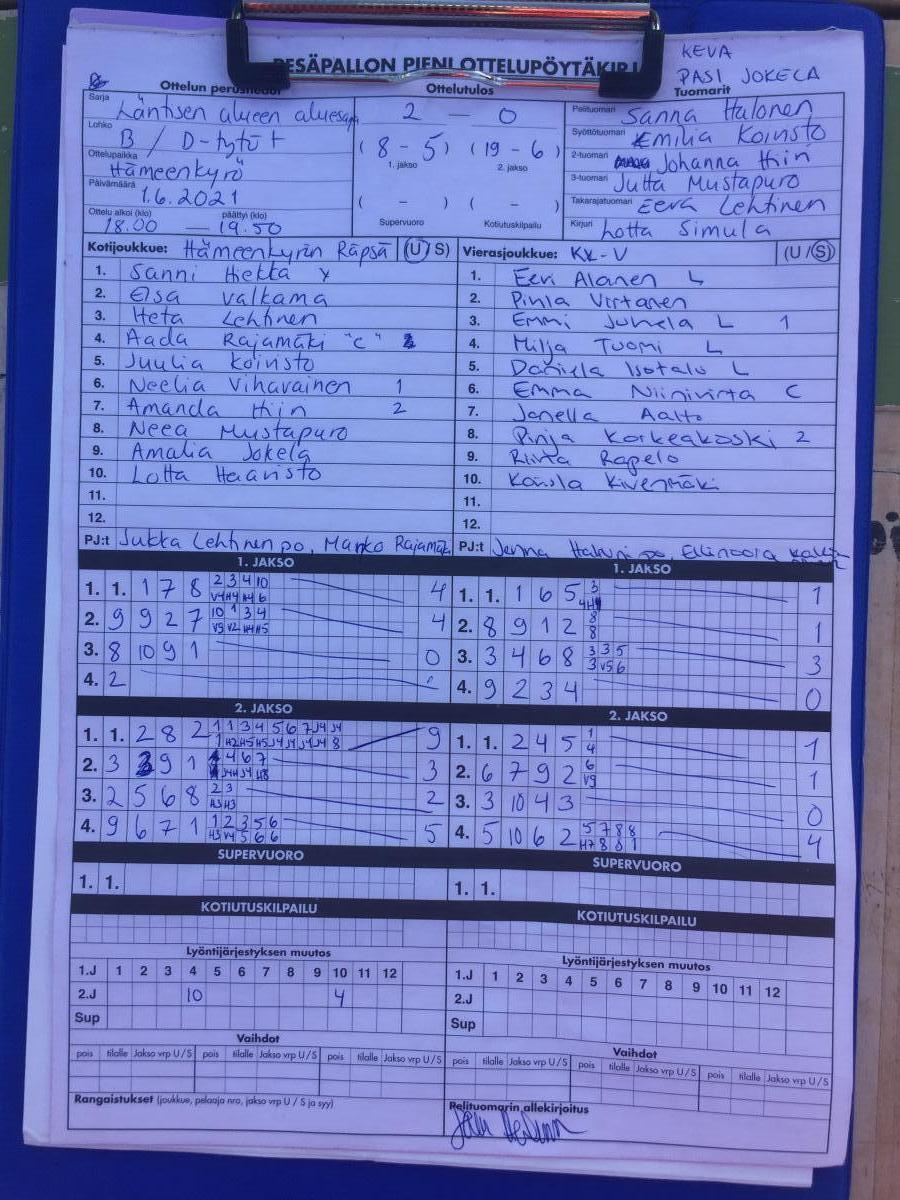 PESÄPALLON PIENI OTTELUPÖYTÄKIRJ
KEVA
PASI JOKELA
Ottelun perustiedot
Ottelutulos
Tuomarit
Sarja Läntisen alueen aluesarja
Lohko B / D-tytöt
Ottelupaikka Hämeenkyrö
Päivämäärä 1.6.2021
Ottelu alkoi (klo) päättyi (klo)
18.00 — 19.50
2 — 0
(8 - 5) (19 - 6)
1. jakso 2. jakso
( - ) ( - )
Supervuoro Kotiutuskilpailu
Pelituomari Sanna Halonen
Syöttötuomari Emilia Koivisto
2-tuomari Johanna Hiiri
3-tuomari Jutta Mustapuro
Takarajatuomari Eeva Lehtinen
Kirjuri Lotta Simula
Kotijoukkue: Hämeenkyrön Räpsä (U/S)
1. Sanni Hiekka Y
2. Elsa Valkama
3. Heta Lehtinen
4. Aada Rajamäki "C"
5. Juulia Koivisto
6. Neelia Vihavainen 1
7. Amanda Hiiri 2
8. Neea Mustapuro
9. Amalia Jokela
10. Lotta Haavisto
11.
12.
PJ:t Jukka Lehtinen po, Marko Rajamäki
Vierasjoukkue: KX-V (U/S)
1. Eevi Alanen L
2. Pinla Virtanen
3. Emmi Juhela L 1
4. Milja Tuomi L
5. Daniela Isotalo L
6. Emma Niinivirta C
7. Janella Aalto
8. Pinja Korkeakoski 2
9. Riina Rapelo
10. Kaisla Kivenmäki
11.
12.
PJ:t Jenna
1. JAKSO
1. 1. 1 7 8 2 3 4 10 4
V4 H4 H4 6
2. 9 9 2 7 10 1 3 4 4
V9 V2 H4 H5
3. 8 10 9 1 0
4. 2
1. JAKSO
1. 1. 1 6 5 3 1
4H4
2. 8 9 1 2 8 1
8
3. 3 4 6 8 3 3 5 3
3 V5 6
4. 9 2 3 4 0
2. JAKSO
1. 1. 2 8 2 1 1 3 4 5 6 7 J4 J4 9
1 H2 H5 H5 J4 J4 J4 J4 8
2. 3 3 9 1 4 6 7 3
J4H J4 H8
3. 2 5 6 8 2 3 2
H3 H3
4. 9 6 7 1 1 2 3 5 6 5
H3 V4 5 6 6
2. JAKSO
1. 1. 2 4 5 1 1
4
2. 6 7 9 2 6 1
V9
3. 3 10 4 3 0
4. 5 10 6 2 5 7 8 8 4
H7 8 8 1
SUPERVUORO
1. 1.
SUPERVUORO
1. 1.
KOTIUTUSKILPAILU
KOTIUTUSKILPAILU
Lyöntijärjestyksen muutos
1.J 1 2 3 4 5 6 7 8 9 10 11 12
2.J 10 4
Sup
Lyöntijärjestyksen muutos
1.J 1 2 3 4 5 6 7 8 9 10 11 12
2.J
Sup
Vaihdot
pois tilalle Jakso vrp U/S pois tilalle Jakso vrp U/S pois tilalle Jakso vrp U/S
Vaihdot
pois tilalle Jakso vrp U/S pois tilalle Jakso vrp U/S pois tilalle Jakso vrp U/S
Rangaistukset (joukkue, pelaaja nro, jakso vrp U / S ja syy)
Pelituomarin allekirjoitus